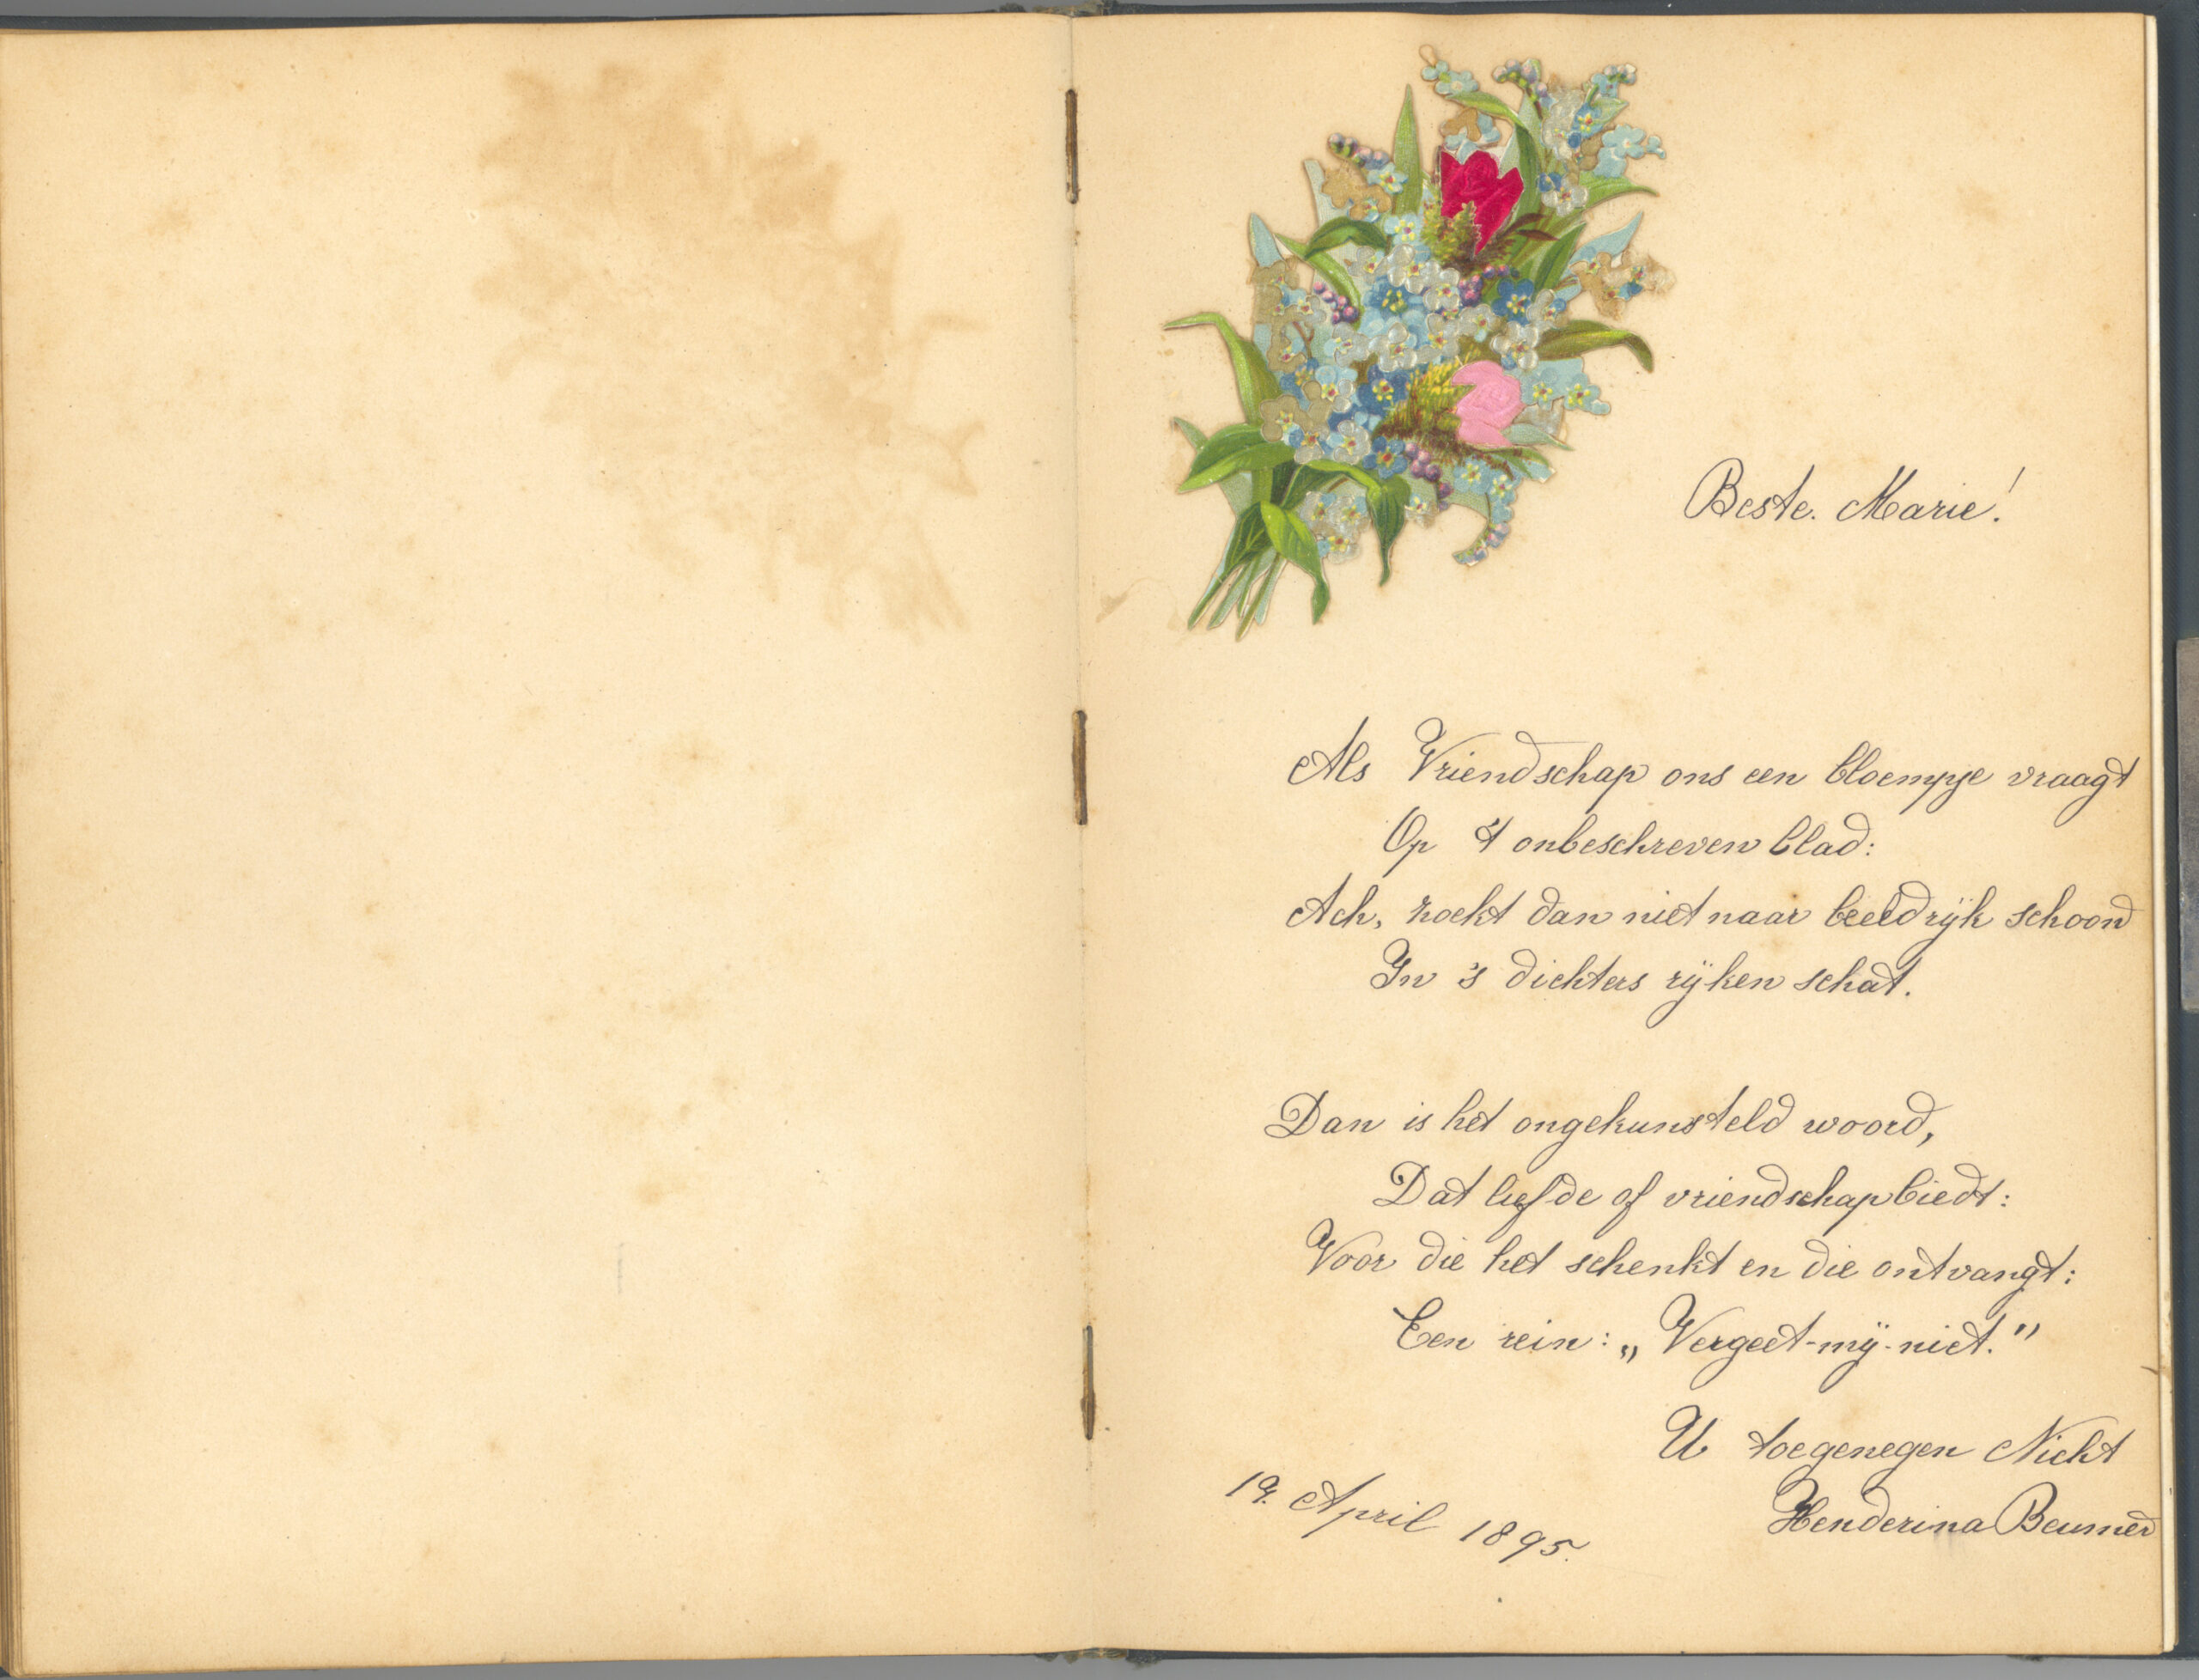 Beste. Marie!
Als Vriendschap ons een bloempje vraagt
Op 't onbeschreven blad:
Ach, zoekt dan niet naar beeldrijk schoon
In 's dichters rijken schat.
Dan is het ongekunsteld woord,
Dat liefde of vriendschap biedt:
Voor die het schenkt en die ontvangt:
Een rein: „Vergeet-mij-niet."
U toegenegen Nicht
19. April 1895.
Henderina Beumer